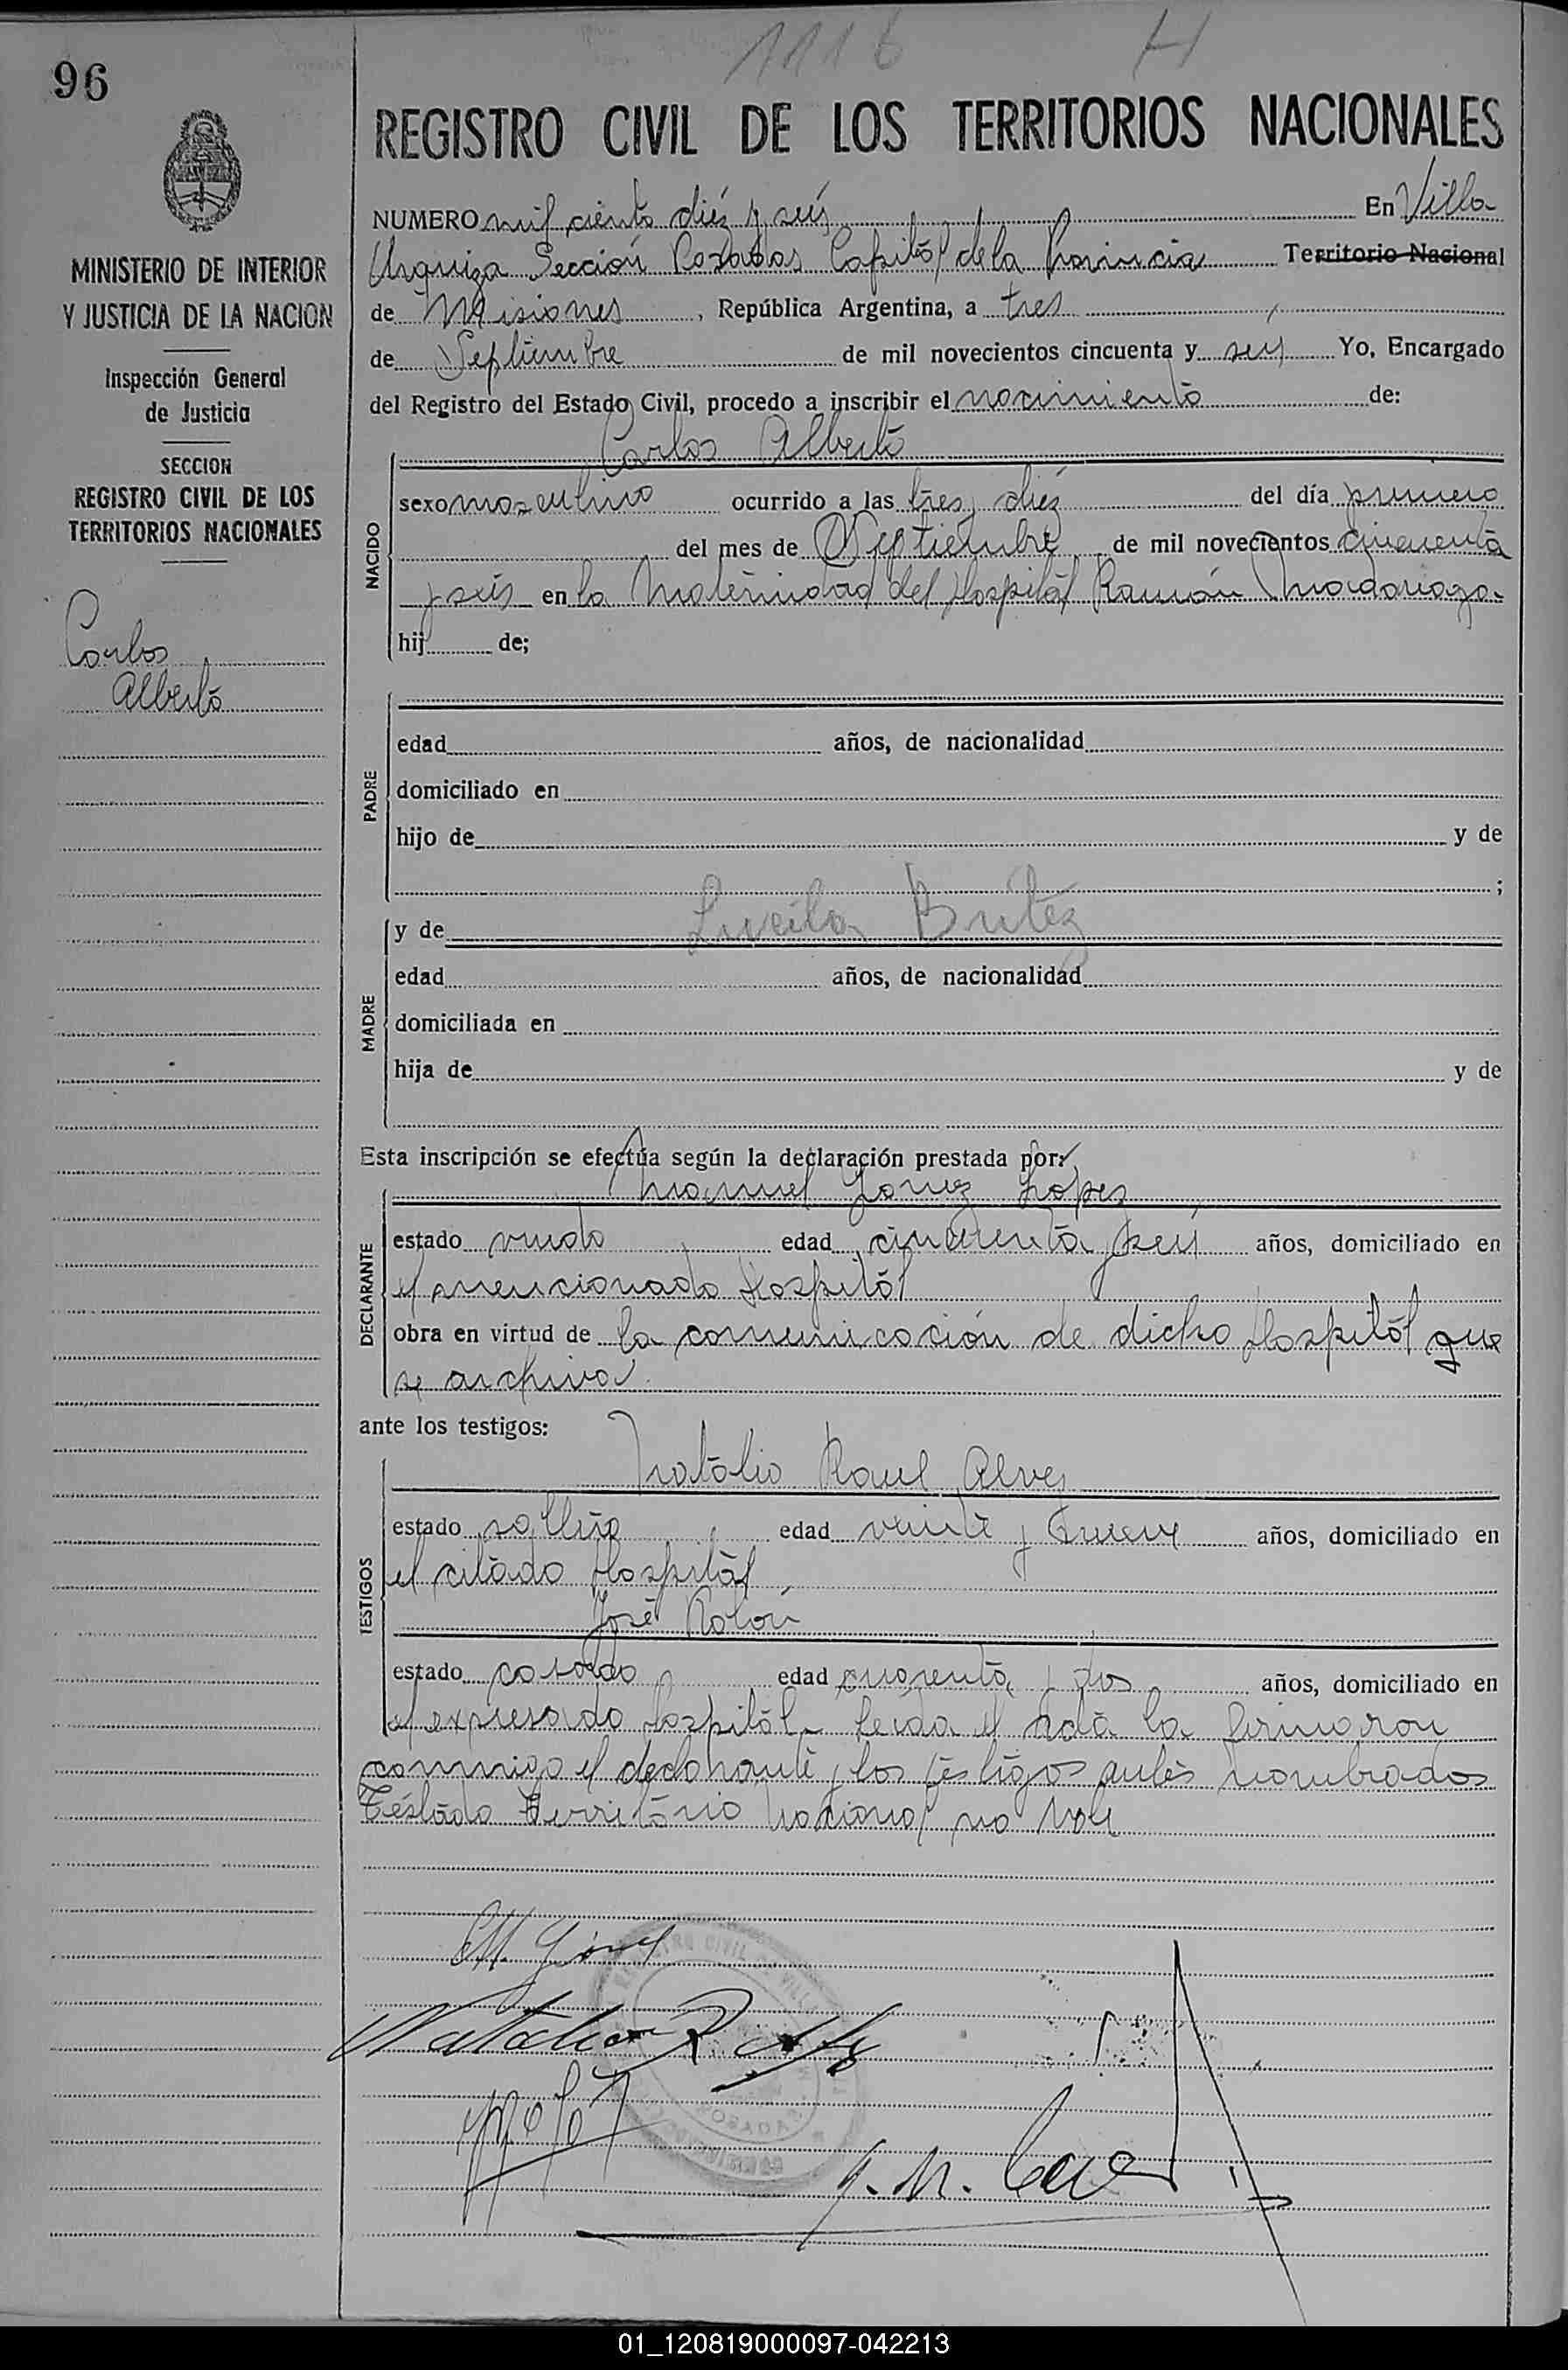 1116 H
96
REGISTRO CIVIL DE LOS TERRITORIOS NACIONALES
MINISTERIO DE INTERIOR
Y JUSTICIA DE LA NACION
Inspección General
de Justicia
SECCION
REGISTRO CIVIL DE LOS
TERRITORIOS NACIONALES
Carlos
Alberto
NUMERO mil ciento diéz y seis En Villa
Urquiza Sección Posadas Capital de la Provincia Territorio Nacional
de Misiones, República Argentina, a tres
de Septiembre de mil novecientos cincuenta y seis Yo, Encargado
del Registro del Estado Civil, procedo a inscribir el nacimiento de:
Carlos Alberto
NACIDO
sexo masculino ocurrido a las tres, diéz del día primero
del mes de Septiembre de mil novecientos cincuenta
y seis en la Maternidad del Hospital Ramón Madariaga
hij de;
PADRE
edad años, de nacionalidad
domiciliado en
hijo de y de
;
MADRE
y de Lucila Britez
edad años, de nacionalidad
domiciliada en
hija de y de
Esta inscripción se efectúa según la declaración prestada por:
Manuel Gomez Lopez
DECLARANTE
estado viudo edad cincuenta y seis años, domiciliado en
el mencionado Hospital
obra en virtud de la comunicación de dicho Hospital que
se archiva
ante los testigos:
Natalio Raul Alves
TESTIGOS
estado soltero edad veinte y nueve años, domiciliado en
el citado Hospital
José Rolón
estado casado edad cuarenta y dos años, domiciliado en
el expresado Hospital leida el acta la firmaron
conmigo el declarante y los testigos antes nombrados
Testado Territorio Nacional no vale
M. Gomez
Natalio R. Alves
REGISTRO CIVIL DE VILLA
POSADAS
01_120819000097-042213